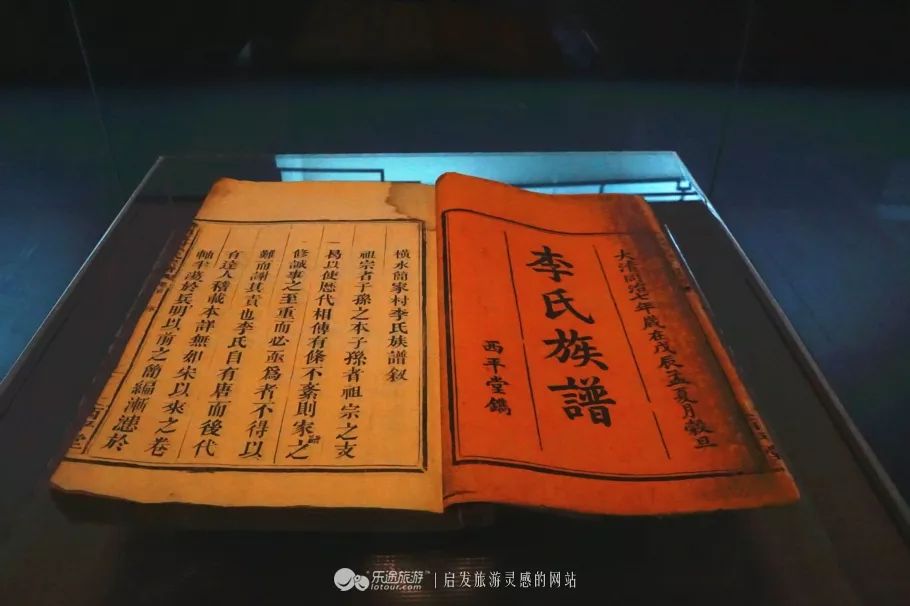 大清同治七年歲在戊辰孟夏月穀旦
李氏族譜
西平堂鐫
橫水簡家村李氏族譜敘
祖宗者子孫之本子孫者祖宗之支
一曷以使歷代相傳有條不紊則家之譜
修誠事之至重而必亟為者不得以
難而諉其責也李氏自有唐而後代
有達人稽載本詳無如宋以來之卷
軸半於兵明以前之簡編漸於
乐途旅游
lotour.com
启发旅游灵感的网站